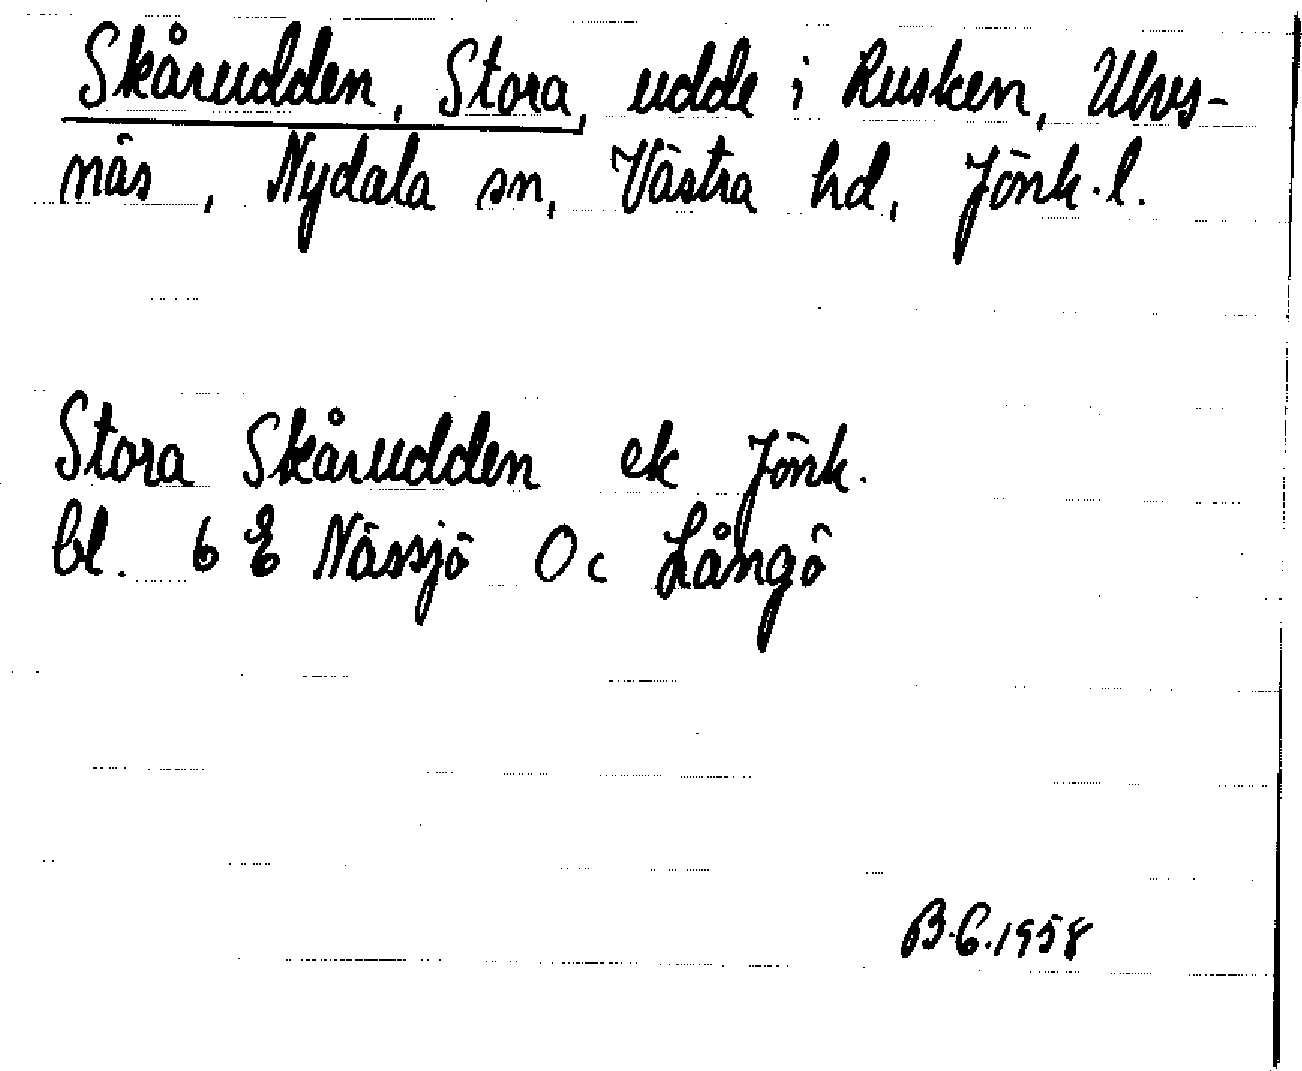 Skårudden, Stora, udde i Rusken, Ulvs-
näs, Nydala sn, Västra hd, Jönk.l.
Stora Skårudden ek Jönk.
bl. 6 E Nässjö Oc Långö
B.G.1958